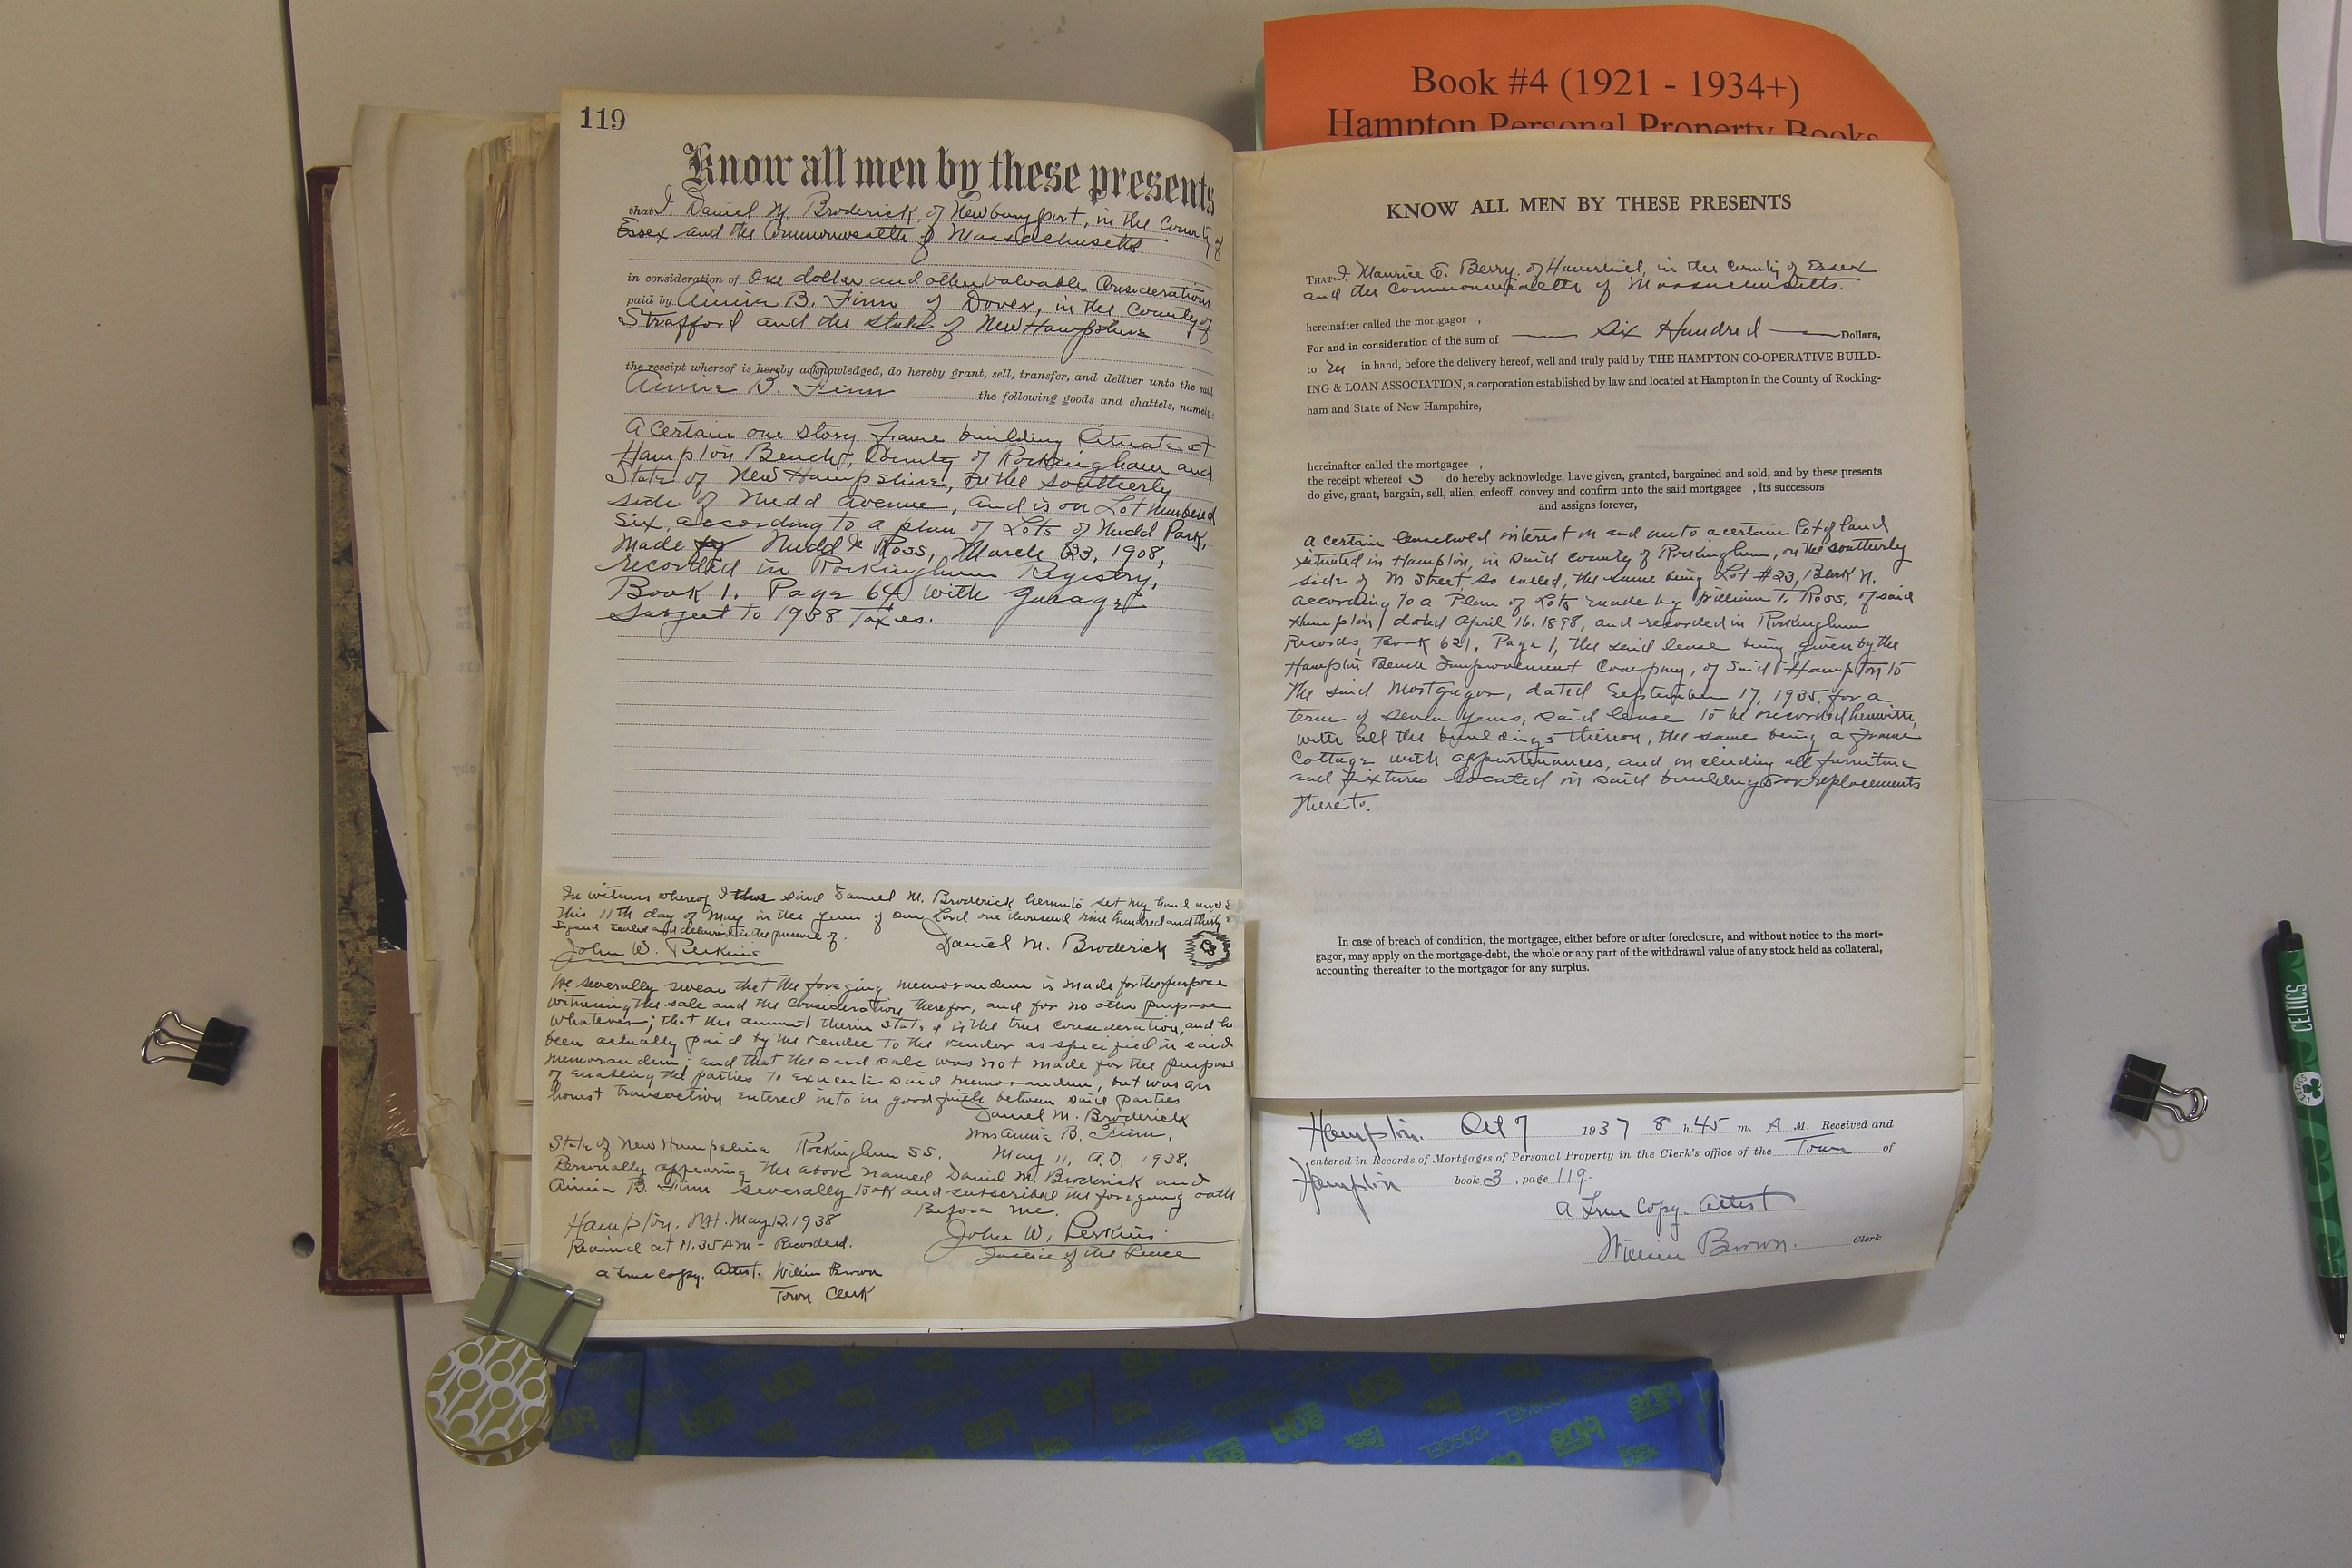 Book #4 (1921 - 1934+)
Hampton Personal Property Books
119
Know all men by these presents
that I, Daniel M. Broderick, of Newburyport, in the County of
Essex and the Commonwealth of Massachusetts
in consideration of One dollar and other valuable Considerations
paid by Annie B. Finn of Dover, in the County of
Strafford and the state of New Hampshire
the receipt whereof is hereby acknowledged, do hereby grant, sell, transfer, and deliver unto the said
Annie B. Finn the following goods and chattels, namely:
A certain one story frame building situate at
Hampton Beach, County of Rockingham and
State of New Hampshire, on the southerly
side of Nudd avenue, and is on Lot numbered
Six, according to a plan of Lots of Nudd Park,
made by Nudd & Ross, March 23, 1908,
recorded in Rockingham Registry,
Book 1. Page 64 with garage
Subject to 1938 Taxes.
In witness whereof I the said Daniel M. Broderick hereunto set my hand and
this 11th day of May in the year of our Lord one thousand nine hundred and thirty
Signed Sealed and delivered in the presence of.
John W. Perkins Daniel M. Broderick
We severally swear that the foregoing memorandum is made for the purpose
witnessing the sale and the consideration therefor, and for no other purpose
whatever; that the amount therein stated is the true consideration, and ha
been actually paid by the vendee to the vendor as specified in said
memorandum; and that the said sale was not made for the purpose
of enabling the parties to execute said memorandum, but was an
honest transaction entered into in good faith between said parties
Daniel M. Broderick
Mrs Annie B. Finn.
State of New Hampshire Rockingham SS. May 11, A.D. 1938.
Personally appearing the above named Daniel M. Broderick and
Annie B. Finn severally took and subscribed the foregoing oath
Before me.
Hampton, N.H. May 12, 1938
John W. Perkins
Received at 11.35 AM - Recorded.
Justice of the Peace
a true copy. Attest. William Brown
Town Clerk
KNOW ALL MEN BY THESE PRESENTS
THAT I, Maurice E. Berry, of Haverhill, in the County of Essex
and the Commonwealth of Massachusetts.
hereinafter called the mortgagor ,
For and in consideration of the sum of Six Hundred Dollars,
to me in hand, before the delivery hereof, well and truly paid by THE HAMPTON CO-OPERATIVE BUILD-
ING & LOAN ASSOCIATION, a corporation established by law and located at Hampton in the County of Rocking-
ham and State of New Hampshire,
hereinafter called the mortgagee ,
the receipt whereof I do hereby acknowledge, have given, granted, bargained and sold, and by these presents
do give, grant, bargain, sell, alien, enfeoff, convey and confirm unto the said mortgagee , its successors
and assigns forever,
A certain leasehold interest in and unto a certain lot of land
situated in Hampton, in said county of Rockingham, on the southerly
side of M Street so called, the same being Lot #23, Block N.
according to a Plan of Lots made by William T. Ross, of said
Hampton, dated April 16, 1898, and recorded in Rockingham
Records, Book 621, Page 1, the said lease being given by the
Hampton Beach Improvement Company, of said Hampton to
the said Mortgagor, dated September 17, 1935, for a
term of seven years, said lease to be recorded herewith,
with all the buildings thereon, the same being a frame
Cottage with appurtenances, and including all furniture
and fixtures located in said buildings or replacements
thereto.
In case of breach of condition, the mortgagee, either before or after foreclosure, and without notice to the mort-
gagor, may apply on the mortgage-debt, the whole or any part of the withdrawal value of any stock held as collateral,
accounting thereafter to the mortgagor for any surplus.
Hampton. Oct 7 1937 8 h. 45 m. A M. Received and
entered in Records of Mortgages of Personal Property in the Clerk's office of the Town of
Hampton book 3, page 119.
A True Copy - Attest
William Brown. Clerk
CELTICS